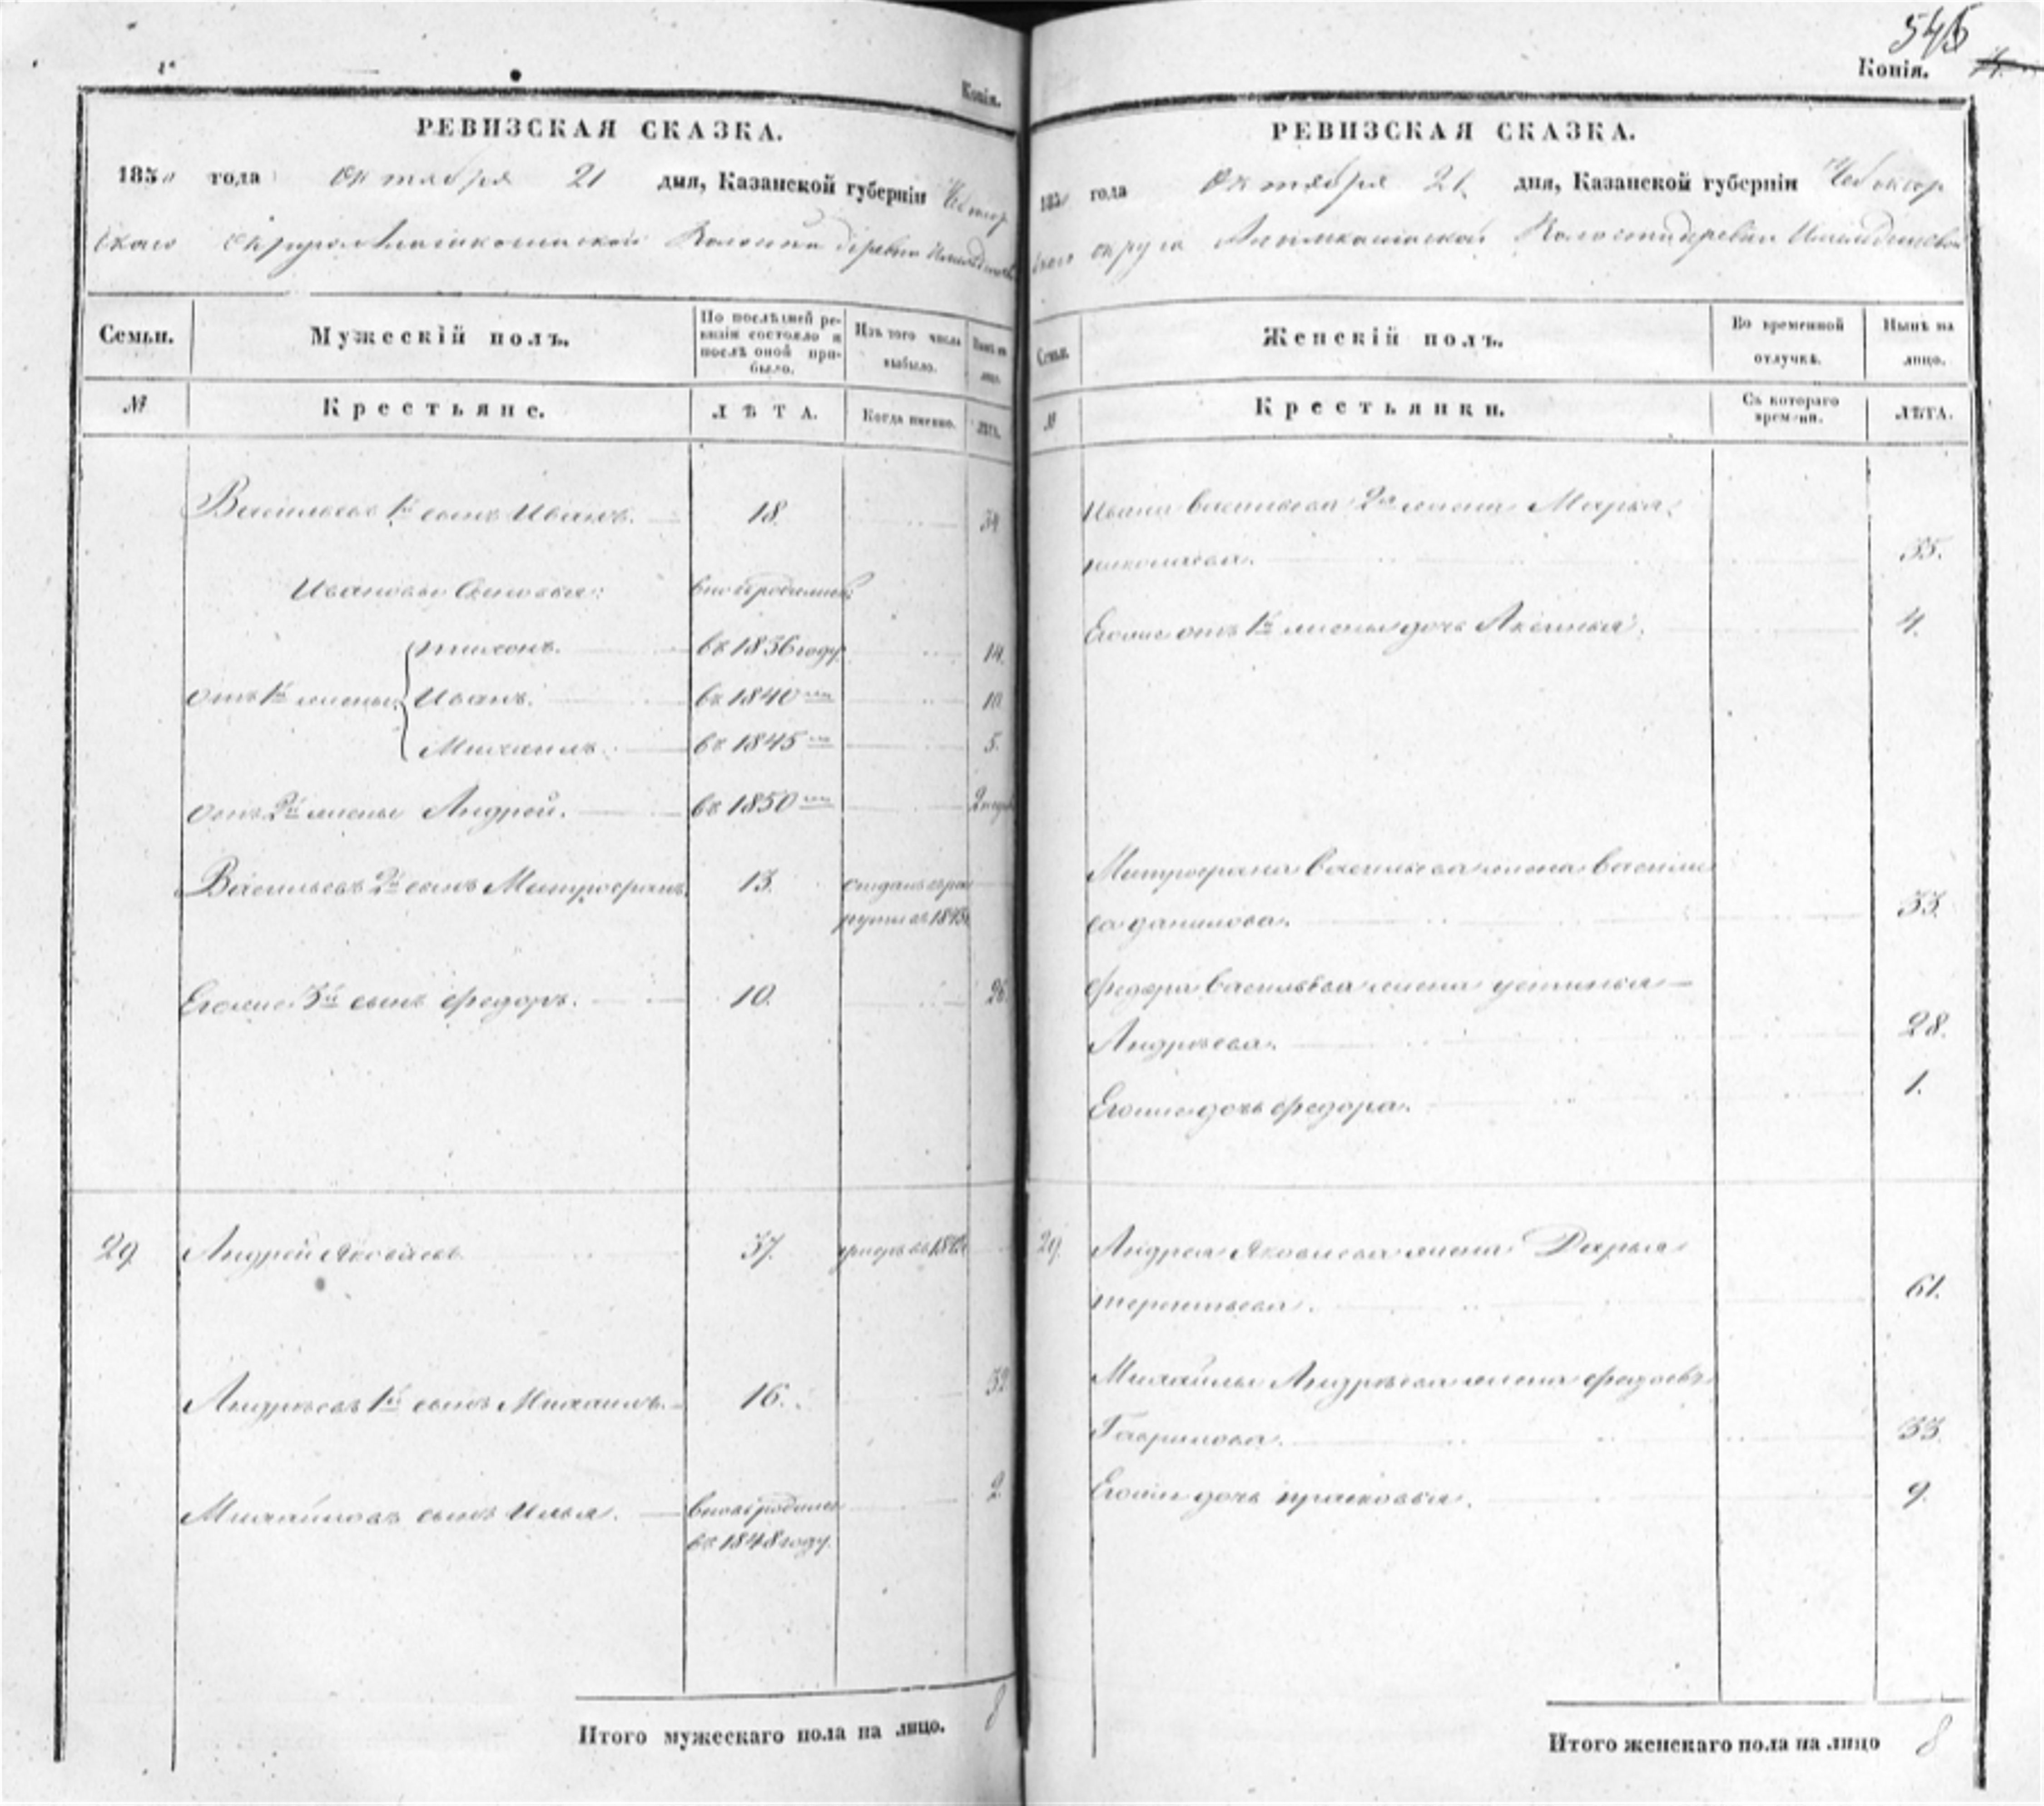 Копія.
РЕВИЗСКАЯ СКАЗКА.
1850 года октября 21 дня, Казанской губерніи Чебоксар
скаго округа Волости деревни
Семьи. Мужескій полъ. По послѣдней ре-
визіи состояло и
послѣ оной при-
было. Изъ того числа
выбыло. Нынѣ на
лицо.
№ Крестьяне. ЛѢТА. Когда именно. ЛѢТА.
Васильевъ 1й сынъ Иванъ. 18. 34
Ивановы сыновья: вновьрожденные
Тихонъ. въ 1836 году 14.
отъ 1й жены Иванъ. въ 1840 10
Михаилъ. въ 1845 5.
отъ 2й жены Андрей. въ 1850
Васильевъ 2й сынъ Митрофанъ. 13. отданъ въ рек
руты въ 1843
Егоже 3й сынъ Федоръ. 10. 26
29 Андрей Яковлевъ 37.
Андреевъ 1й сынъ Михаилъ. 16. 32
Михайловъ сынъ Илья. вновьродился 2
въ 1848 году.
Итого мужескаго пола на лицо. 8
545
Копія.
РЕВИЗСКАЯ СКАЗКА.
1850 года октября 21 дня, Казанской губерніи Чебоксар
скаго округа Волости деревни
Семьи. Женскій полъ. Во временной
отлучкѣ. Нынѣ на
лицо.
№ Крестьянки. Съ котораго
времени. ЛѢТА.
Ивана Васильева 2я жена Марья
николаева. 35.
Егоже отъ 1й жены дочь Акулина. 4.
Митрофана Васильева жена Василис
са данилова. 33.
Федора Васильева жена устинья
Андреева. 28.
Егоже дочь федора. 1.
29 Андрея Яковлева жена Дарья
терентьева. 61.
Михайлы Андреева жена
Гаврилова. 33.
Егоже дочь прасковья. 9.
Итого женскаго пола на лицо 8